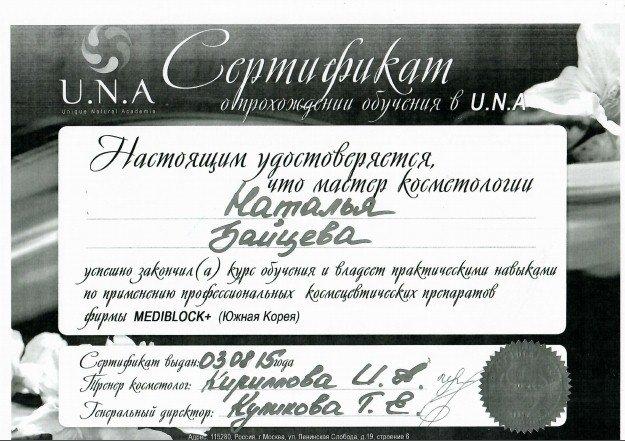 Сертификат
о прохождении обучения в U.N.A
U.N.A
Unique Natural Academia
Настоящим удостоверяется,
что мастер косметологии
Наталья
Байцева
успешно закончил(а) курс обучения и владеет практическими навыками
по применению профессиональных космецевтических препаратов
фирмы MEDIBLOCK+ (Южная Корея)
Сертификат выдан: 03 08 15 года
Тренер косметолог: Кириллова И. А.
Генеральный директор: Куликова Т. Е.
Адрес: 115280, Россия, г.Москва, ул. Ленинская Слобода, д.19, строение 6